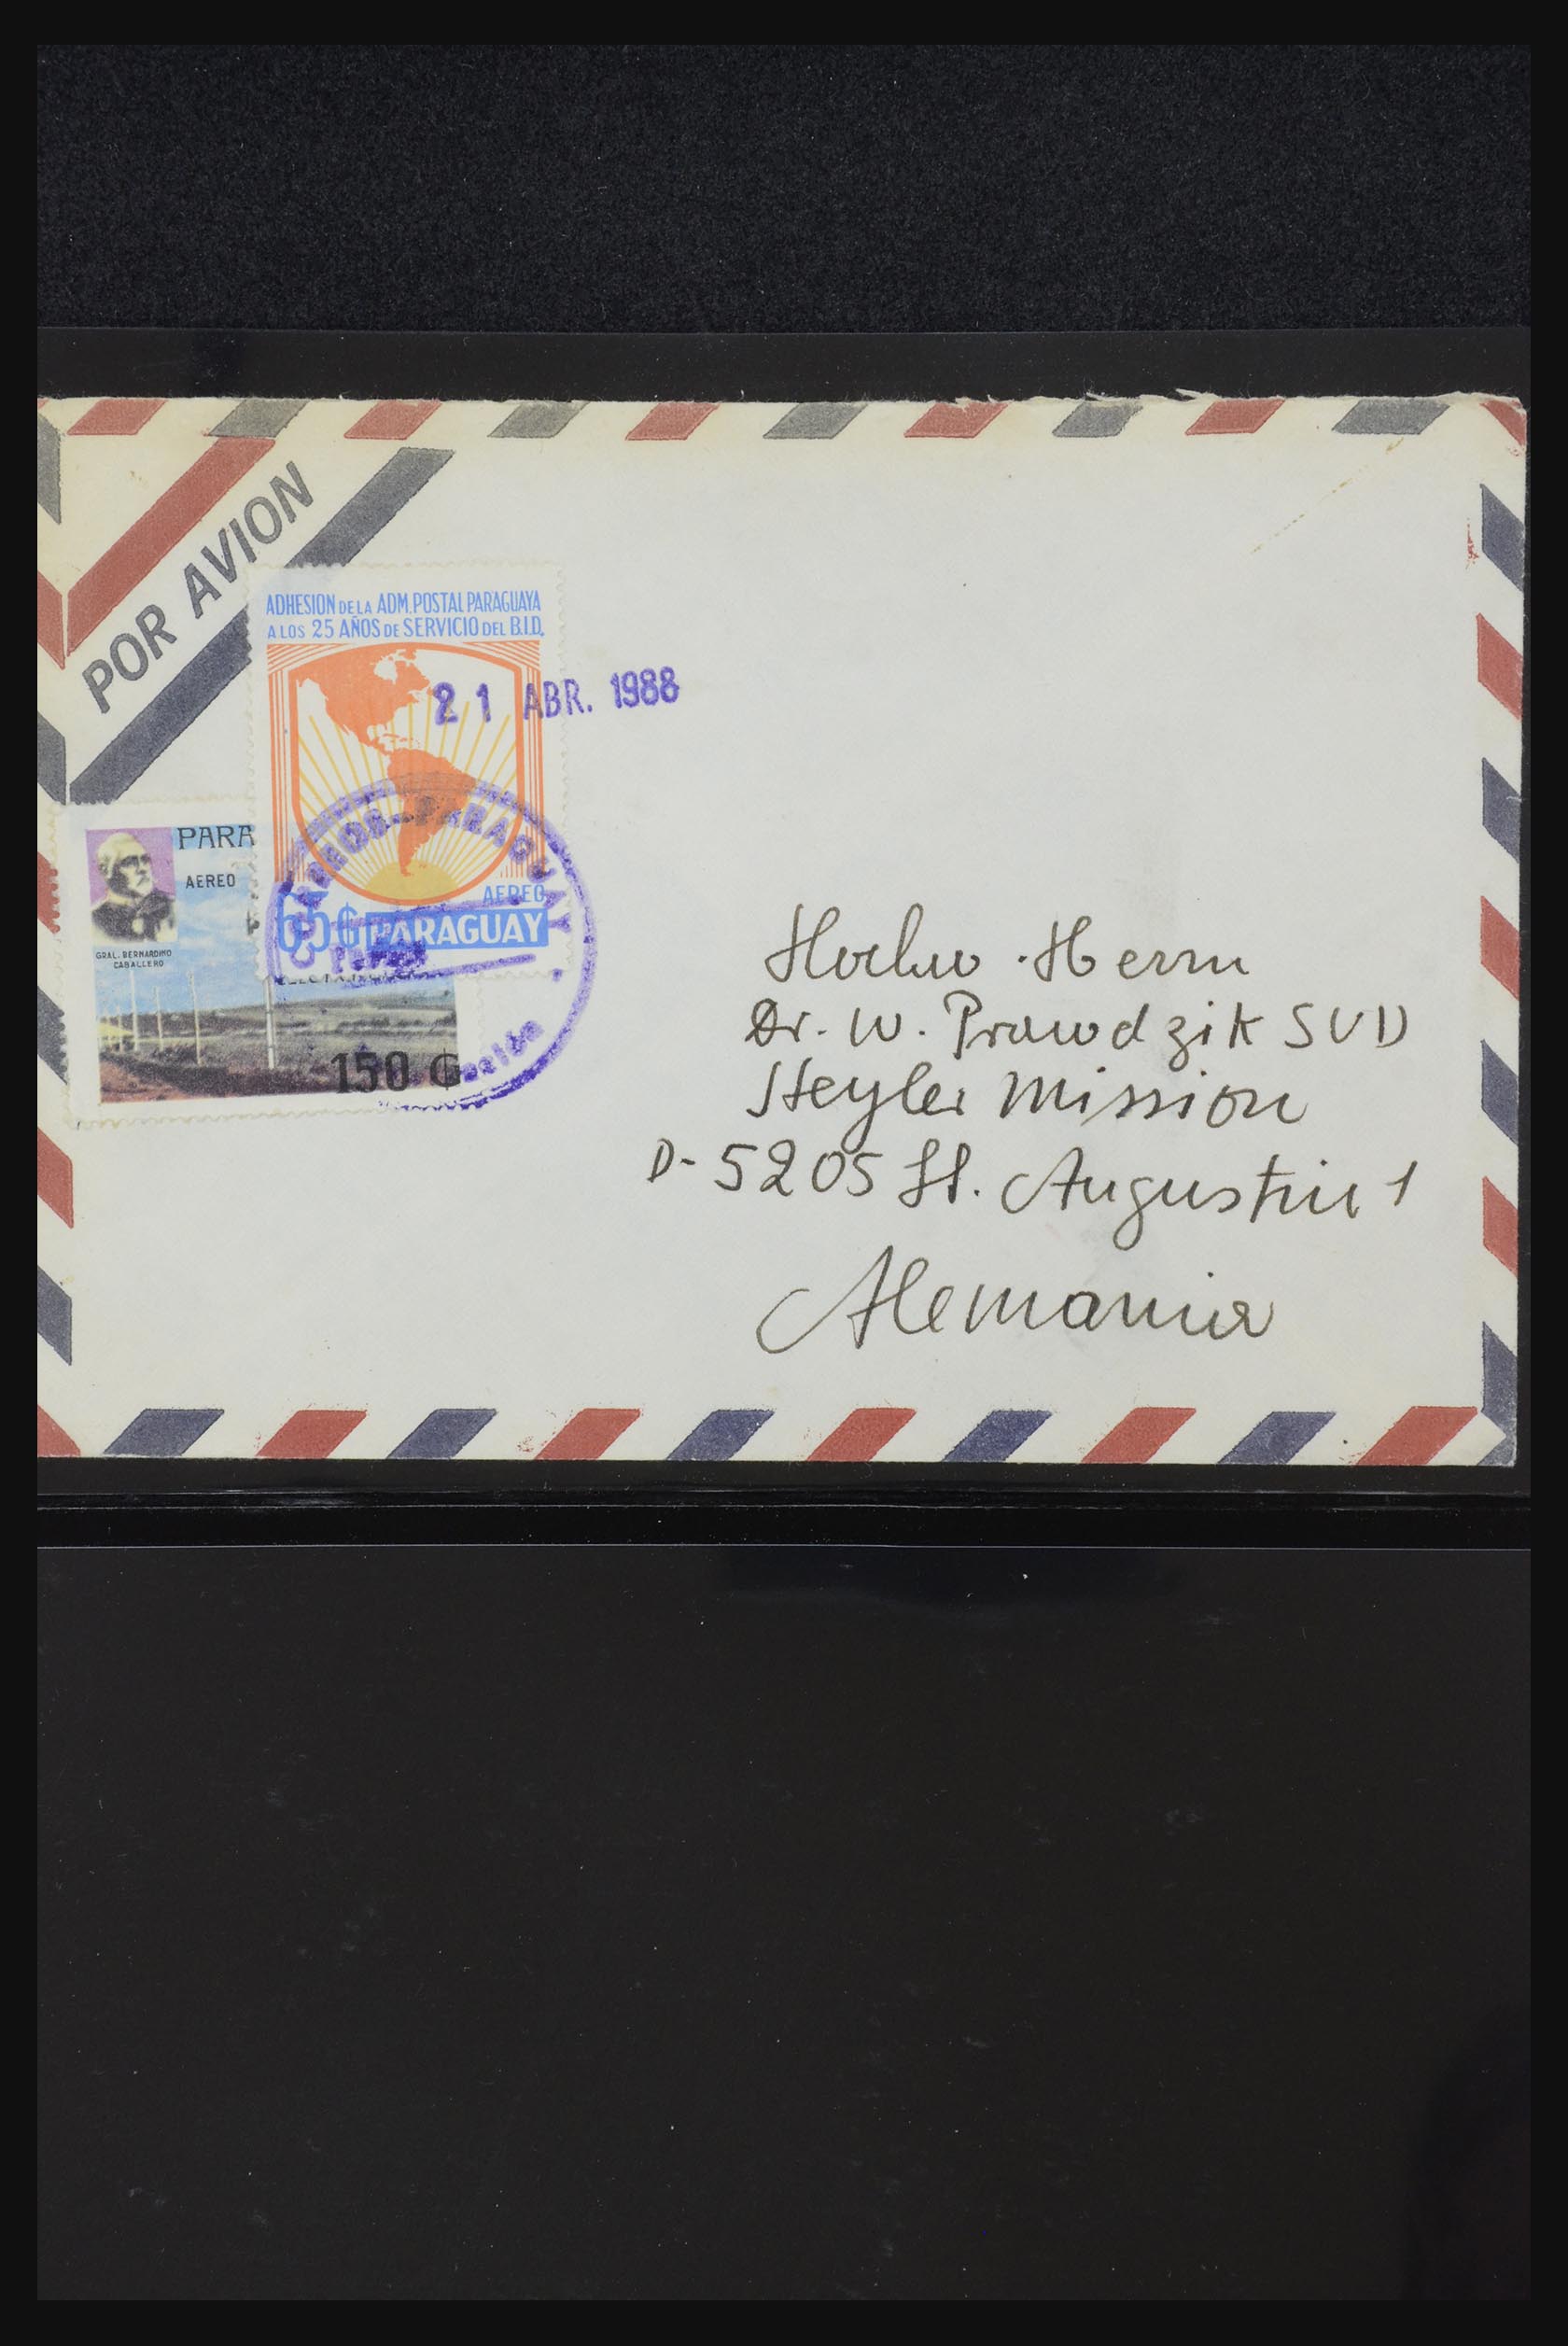 POR AVION
ADHESION DE LA ADM. POSTAL PARAGUAYA
A LOS 25 AÑOS DE SERVICIO DEL B.I.D.
21 ABR. 1988
CORREOS-PARAGUAY
AEREO
65 ₲ PARAGUAY
PARA
AEREO
GRAL. BERNARDINO
CABALLERO
150 ₲
Herrn
Dr. W. Prawdzik SVD
Steyler Mission
D-5205 St. Augustin 1
Alemania